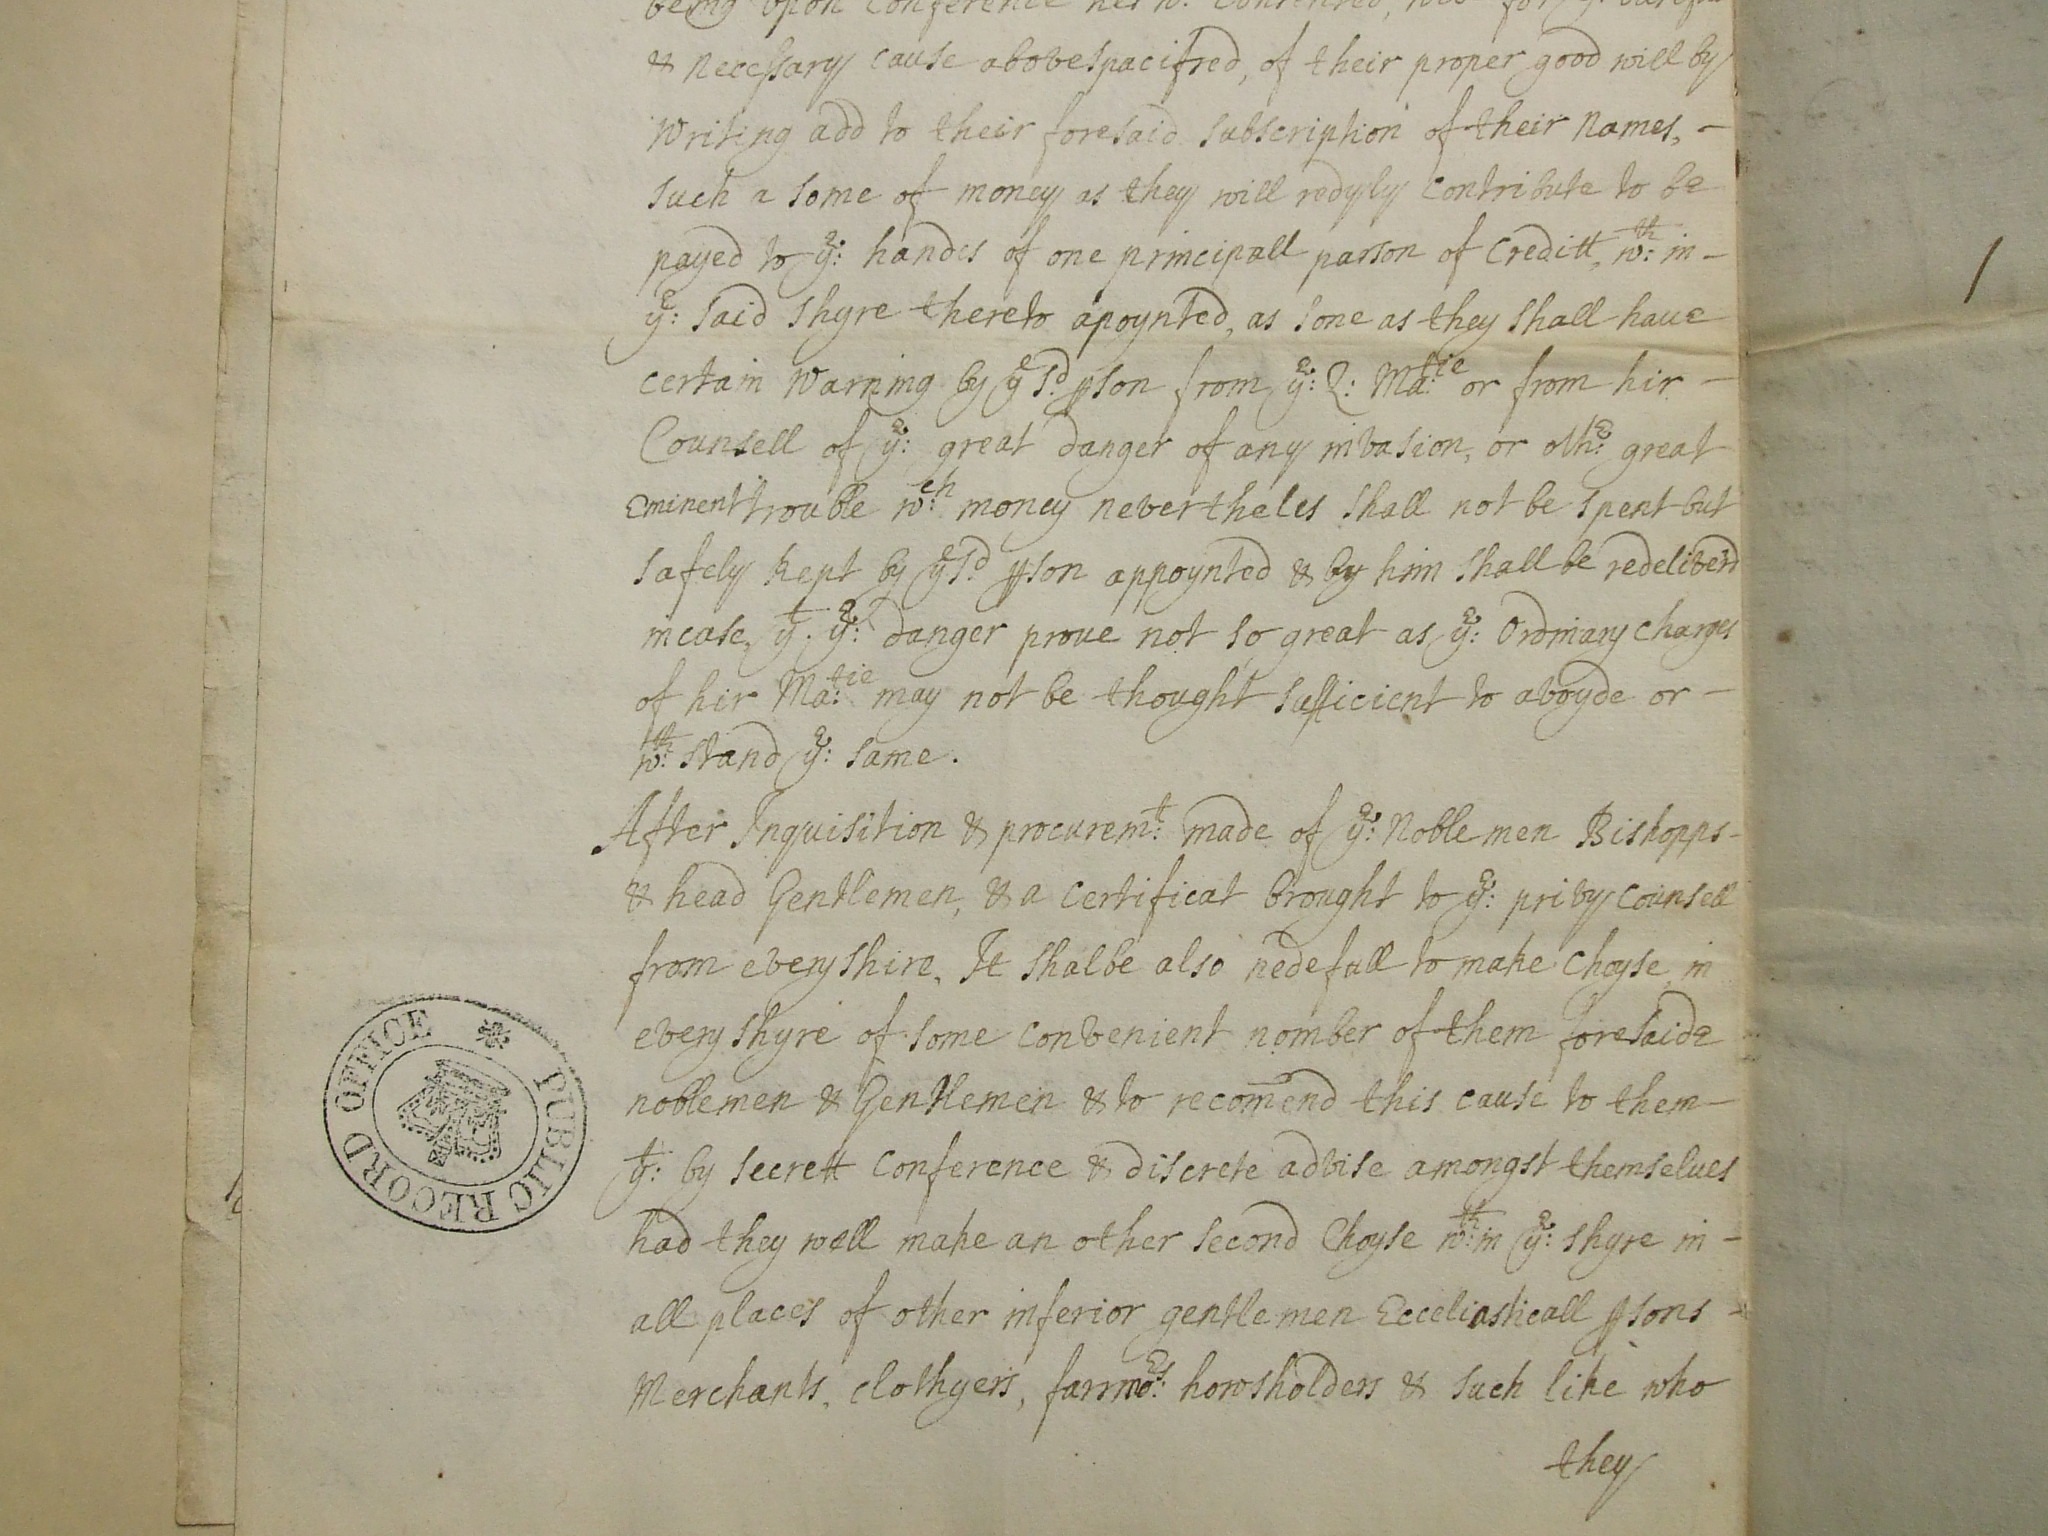 being upon Conference
& Necessary cause abovespacifyed, of their proper good will by
Writing add to their foresaid subscription of their Names, -
such a some of money as they will redyly contribute to be
payed to yᵉ: handes of one principall parson of Creditt, wᵗʰ: in -
yᵉ: said shyre thereto apoynted, as sone as they shall haue
certain Warning by yᵉ sᵈ. pson from yᵉ: Q: Ma:ᵗⁱᵉ or from hir -
Counsell of yᵉ: great danger of any invasion, or othᵉ: great
Eminent trouble wᶜʰ: money neverthelꝭs shall not be spent but
safely kept by yᵉ sᵈ. pson appoynted & by him shall be redeliverd
incase, yᵗ. yᵉ: danger prove not so great as yᵉ: Ordinary charges
of hir Ma:ᵗⁱᵉ may not be thought sufficient to avoyde or -
wᵗʰ: stand yᵉ: same.
After Inquisition & procuremᵗ: made of yᵉ: Noblemen Bishopps -
& head Gentlemen, & a certificat brought to yᵉ: privy counsell
from every shire, It shalbe also nedefull to make choyse in
every shyre of some convenient nomber of them foresaide
noblemen & Gentlemen & to recomend this cause to them -
yᵗ: by secrett conference & discrete advise amongst themselues
had they well make an other second Choyse wᵗʰ: in yᵉ: shyre in -
all places of other inferior gentlemen Eccleliasticall psons -
Merchants, clothyers, farmoʳˢ: howsholders & such like who
they
PUBLIC RECORD OFFICE